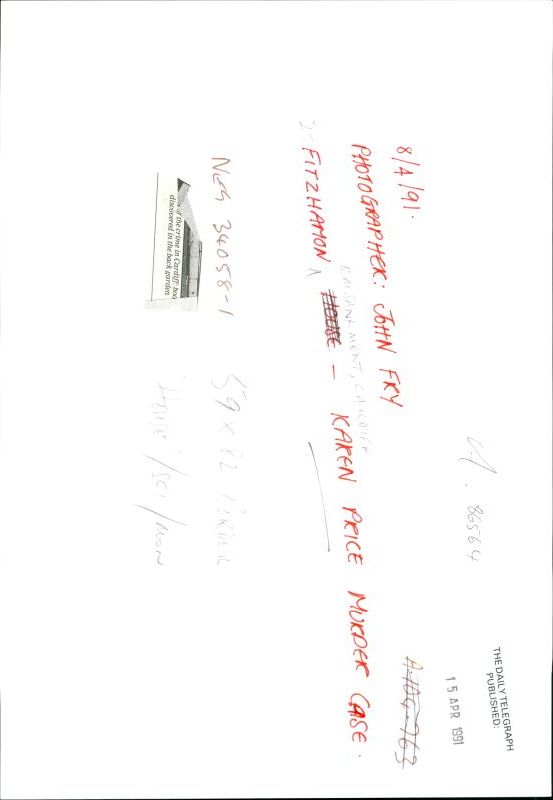 8/4/91.
PHOTOGRAPHER: JOHN FRY
EMBANKMENT, CARDIFF
FITZHAMON HOUSE – KAREN PRICE MURDER CASE.
NEG 34058-1
of the crime in Cardiff: bod
discovered in the back garden
59 x
86564
A-104-763
THE DAILY TELEGRAPH
PUBLISHED:
15 APR 1991